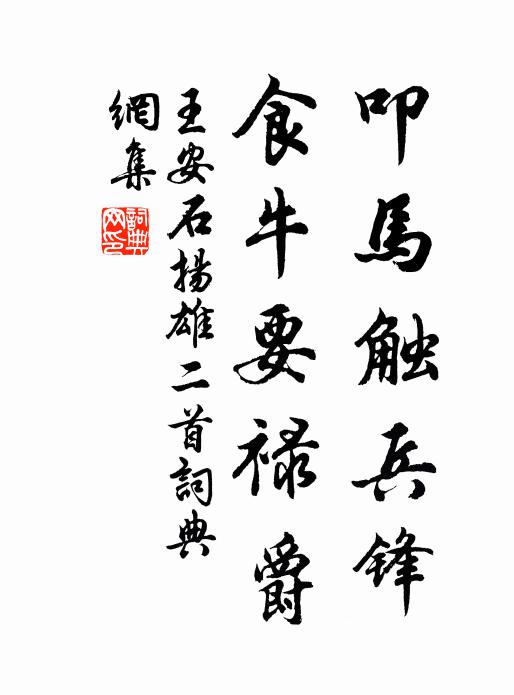 叩馬触兵锋
食牛要禄爵
王安石揚雄二首詞典
網集
詞典
网印